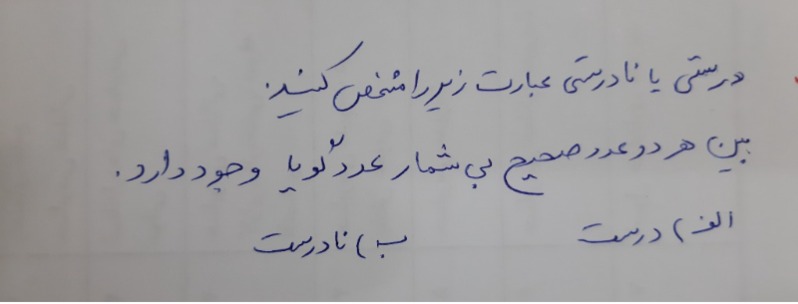 درستی یا نادرستی عبارت زیر را مشخص کنید.
بین هر دو عدد صحیح بی شمار عدد گویا وجود دارد.
الف) درست ب) نادرست